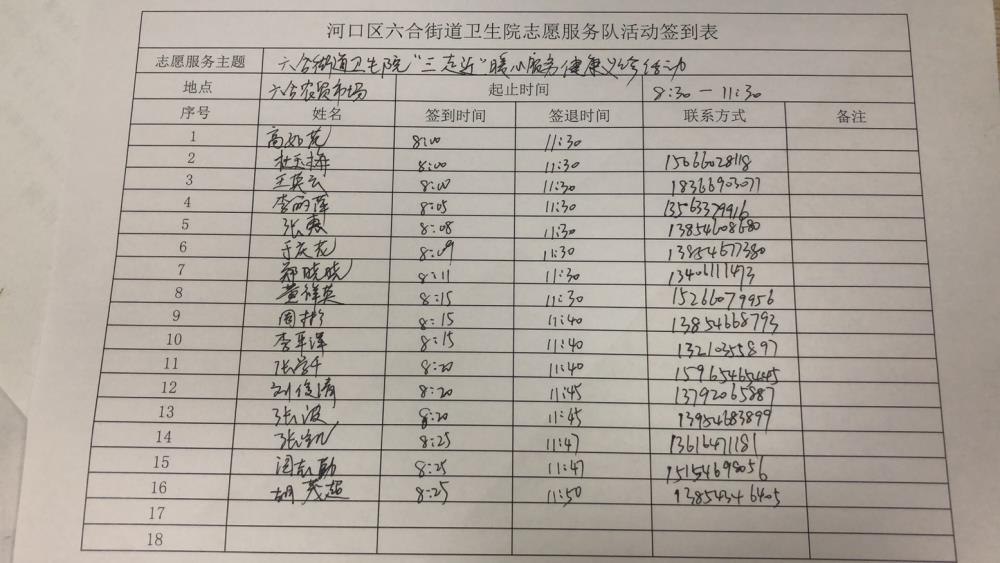 河口区六合街道卫生院志愿服务队活动签到表
志愿服务主题 六合街道卫生院"三走近"暖心服务健康义诊活动
地点 六合农贸市场 起止时间 8:30 — 11:30
序号 姓名 签到时间 签退时间 联系方式 备注
1 高如苑 8:00 11:30
2 杜玉梅 8:00 11:30 15066028118
3 王英云 8:00 11:30 18366903077
4 李丽萍 8:05 11:30 13563379916
5 张惠 8:08 11:30 13854608680
6 于庆花 8:09 11:30 13854677380
7 郑晓晓 8:11 11:30 13406111473
8 黄祥英 8:15 11:30 15266079956
9 周彬 8:15 11:40 13854668793
10 李平洋 8:15 11:40 13210355897
11 张学千 8:20 11:40
12 刘俊清 8:20 11:45 13792065887
13 张波 8:20 11:45 13954683899
14 张凯 8:25 11:47 13616471181
15 闫志勤 8:25 11:47 15154698056
16 胡茂超 8:25 11:50 13854346405
17
18